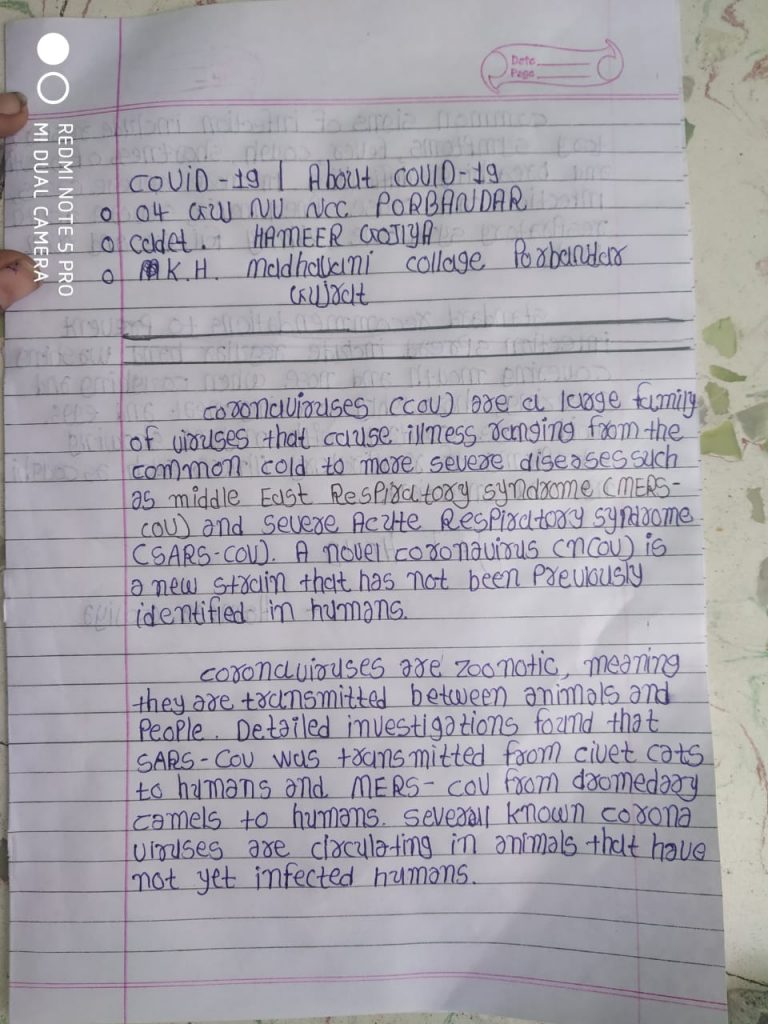 Date
Page
COVID-19 | About COVID-19
04 GUJ NU NCC PORBANDAR
cadet. HAMEER GOJIYA
K.H. madhavani collage Porbandar
Gujrat
coronaviruses (COV) are a large family
of viruses that cause illness ranging from the
common cold to more severe diseases such
as middle East Respiratory syndrome (MERS-
COV) and severe Acute Respiratory syndrome
(SARS-COV). A novel coronavirus (nCOV) is
a new strain that has not been Previously
identified in humans.
coronaviruses are zoonotic, meaning
they are transmitted between animals and
People. Detailed investigations found that
SARS-COV was transmitted from civet cats
to humans and MERS-COV from dromedary
camels to humans. several known corona
viruses are circulating in animals that have
not yet infected humans.
REDMI NOTE 5 PRO
MI DUAL CAMERA